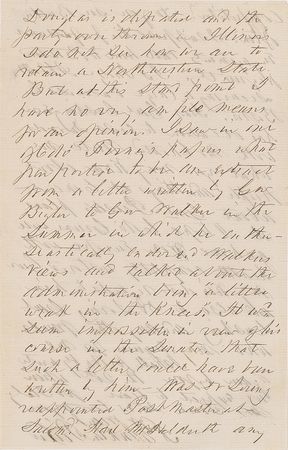 Douglas is defeated and the
party overthrown Illinois
I do not see how we are to
retain a Northwestern State
But at this stand point I
have no very ample means
for an opinion. I saw in one
of Forney's papers what
purported to be an extract
from a letter written by Gov
Bigler to Gov Walker in the
Summer in which he enthu-
siastically endorsed Walkers
views and talked about the
administration being a little
weak in the knees. It w
seem impossible in view of his
course in the Senate, that
such a letter could have been
written by him - Was
reappointed Post Master at
Has any